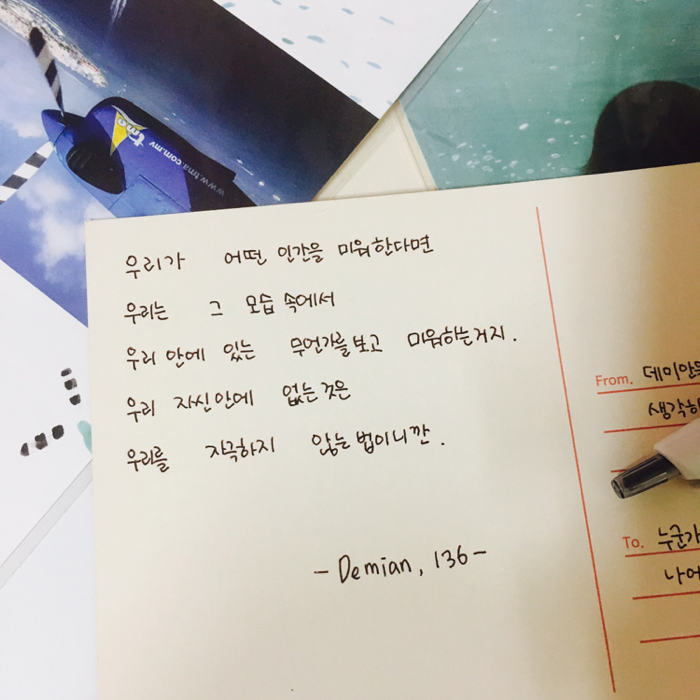 tma
www.tma.com.mv
우리가 어떤 인간을 미워한다면
우리는 그 모습 속에서
우리 안에 있는 무언가를 보고 미워하는거지.
우리 자신안에 없는것은
우리를 자극하지 않는 법이니깐.
- Demian, 136 -
From. 데미안
생각하
To. 누군가
나에